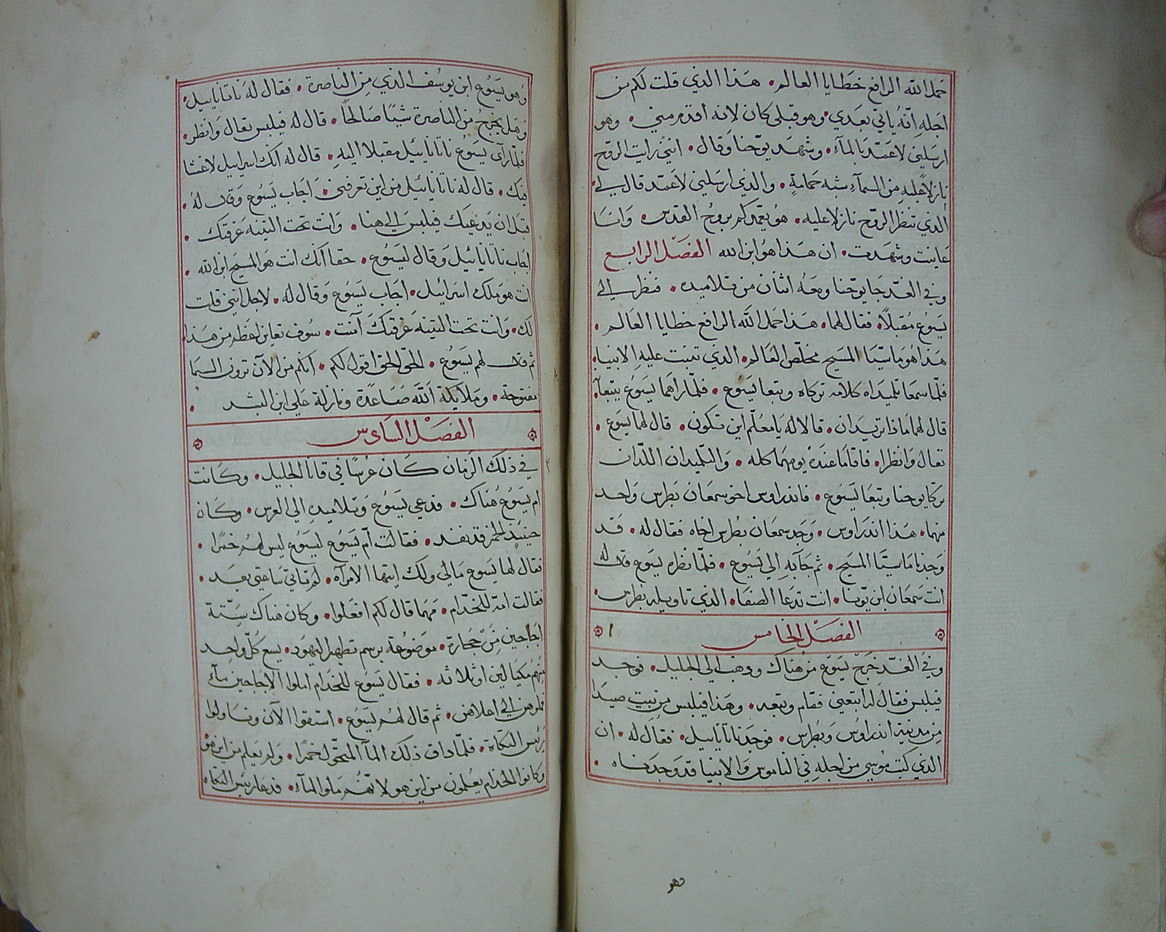 حمل الله الرافع خطايا العالم • هذا الذي قلت لكم من
اجله انه ياتي بعدي • وهو قبلي كان لانه اقدم مني • وهو
ارسلني لاعمد بالماء • وشهد يوحنا وقال • انني رايت الروح
نازلا عليه من السماء شبه حمامة • والذي ارسلني لاعمد قال لي
الذي تنظر الروح نازلا عليه • هو يعمدكم بروح القدس • وانا
عاينت وشهدت • ان هذا هو ابن الله الفصل الرابع
وفي الغد جا يوحنا ومعه اثنان من تلاميذه • فنظر الي
يسوع مقبلا • فقال لهما • هذا حمل الله الرافع خطايا العالم •
هذا هو ماسيا المسيح مخلص العالم • الذي تنبت عليه الانبيا •
فلما سمعا تلميذاه كلامه تركاه وتبعا يسوع • فلما راهما يسوع يتبعاه
قال لهما ماذا تريدان • قالا له يا معلم اين تكون • قال لهما يسوع •
تعال وانظرا • فاقاما عنده يومهما كله • والتلميذان اللذان
تركا يوحنا وتبعا يسوع • فاندراوس اخو سمعان بطرس واحد
منهما • هذا اندراوس • وجد سمعان بطرس اخاه فقال له • قد
وجدنا ماسيا المسيح • ثم جا به الي يسوع • فلما نظره يسوع قال له
انت سمعان ابن يونا • انت تدعا الصفا • الذي تاويله بطرس •
الفصل الخامس ١
وفي الغد خرج يسوع من هناك وذهب الي الجليل • فوجد
فيلبس فقال له اتبعني فقام وتبعه • وهذا فيلبس من بيت صيدا
من مدينة اندراوس وبطرس • فوجد ناثانايل • فقال له • ان
الذي كتب موسي من اجله في الناموس والانبيا قد وجدناه •
وهو
وهو يسوع ابن يوسف الذي من الناصرة • فقال له ناثانايل •
وهل يخرج من الناصرة شيا صالحا • قال له فيلبس تعال وانظر •
فلما راى يسوع ناثانايل مقبلا اليه • قال له انك اسراييل لا غشا
فيك • قال له ناثاناييل من اين تعرفني • اجاب يسوع وقال له •
قبل ان يدعيك فيلبس الي هنا • وانت تحت التينه عرفتك •
اجاب ناثاناييل وقال ليسوع • حقا انك انت هو المسيح ابن الله •
انت هو ملك اسراييل • اجاب يسوع وقال له • لاجل انني قلت
لك • وانت تحت التينه عرفتك آمنت • سوف تعاين اعظم من هذا
ثم قال لهم يسوع • الحق الحق اقول لكم • انكم من الآن ترون السما
مفتوحه • وملايكة الله صاعدة ونازلة علي ابن البشر •
الفصل السادس
في ذلك الزمان كان عرسا في قانا الجليل • وكانت
ام يسوع هناك • فدعي يسوع وتلاميذه الي العرس • وكان
حينيذ الخمر قد نفد • فقالت ام يسوع ليسوع ليس لهم خمرا •
فقال لها يسوع مالي ولك ايتها الامراة • لم تاتي ساعتي بعد •
فقالت امه للخدام • مهما قال لكم افعلوا • وكان هناك ستة
اجاجين من حجارة • موضوعة برسم تطهير اليهود • يسع كل واحد
منهم مكيالين او ثلاثه • فقال يسوع للخدام املوا الاجاجين ماء
فملوهن الي اعلاهن • ثم قال لهم يسوع • استقوا الآن وناولوا
رييس المتكاة • فلما ذاق ذلك الما المتحول خمرا • ولم يعلم من اين هو
وكانوا الخدام يعلمون من اين هو لانهم ملوا الماء • فدعا رييس المتكاه